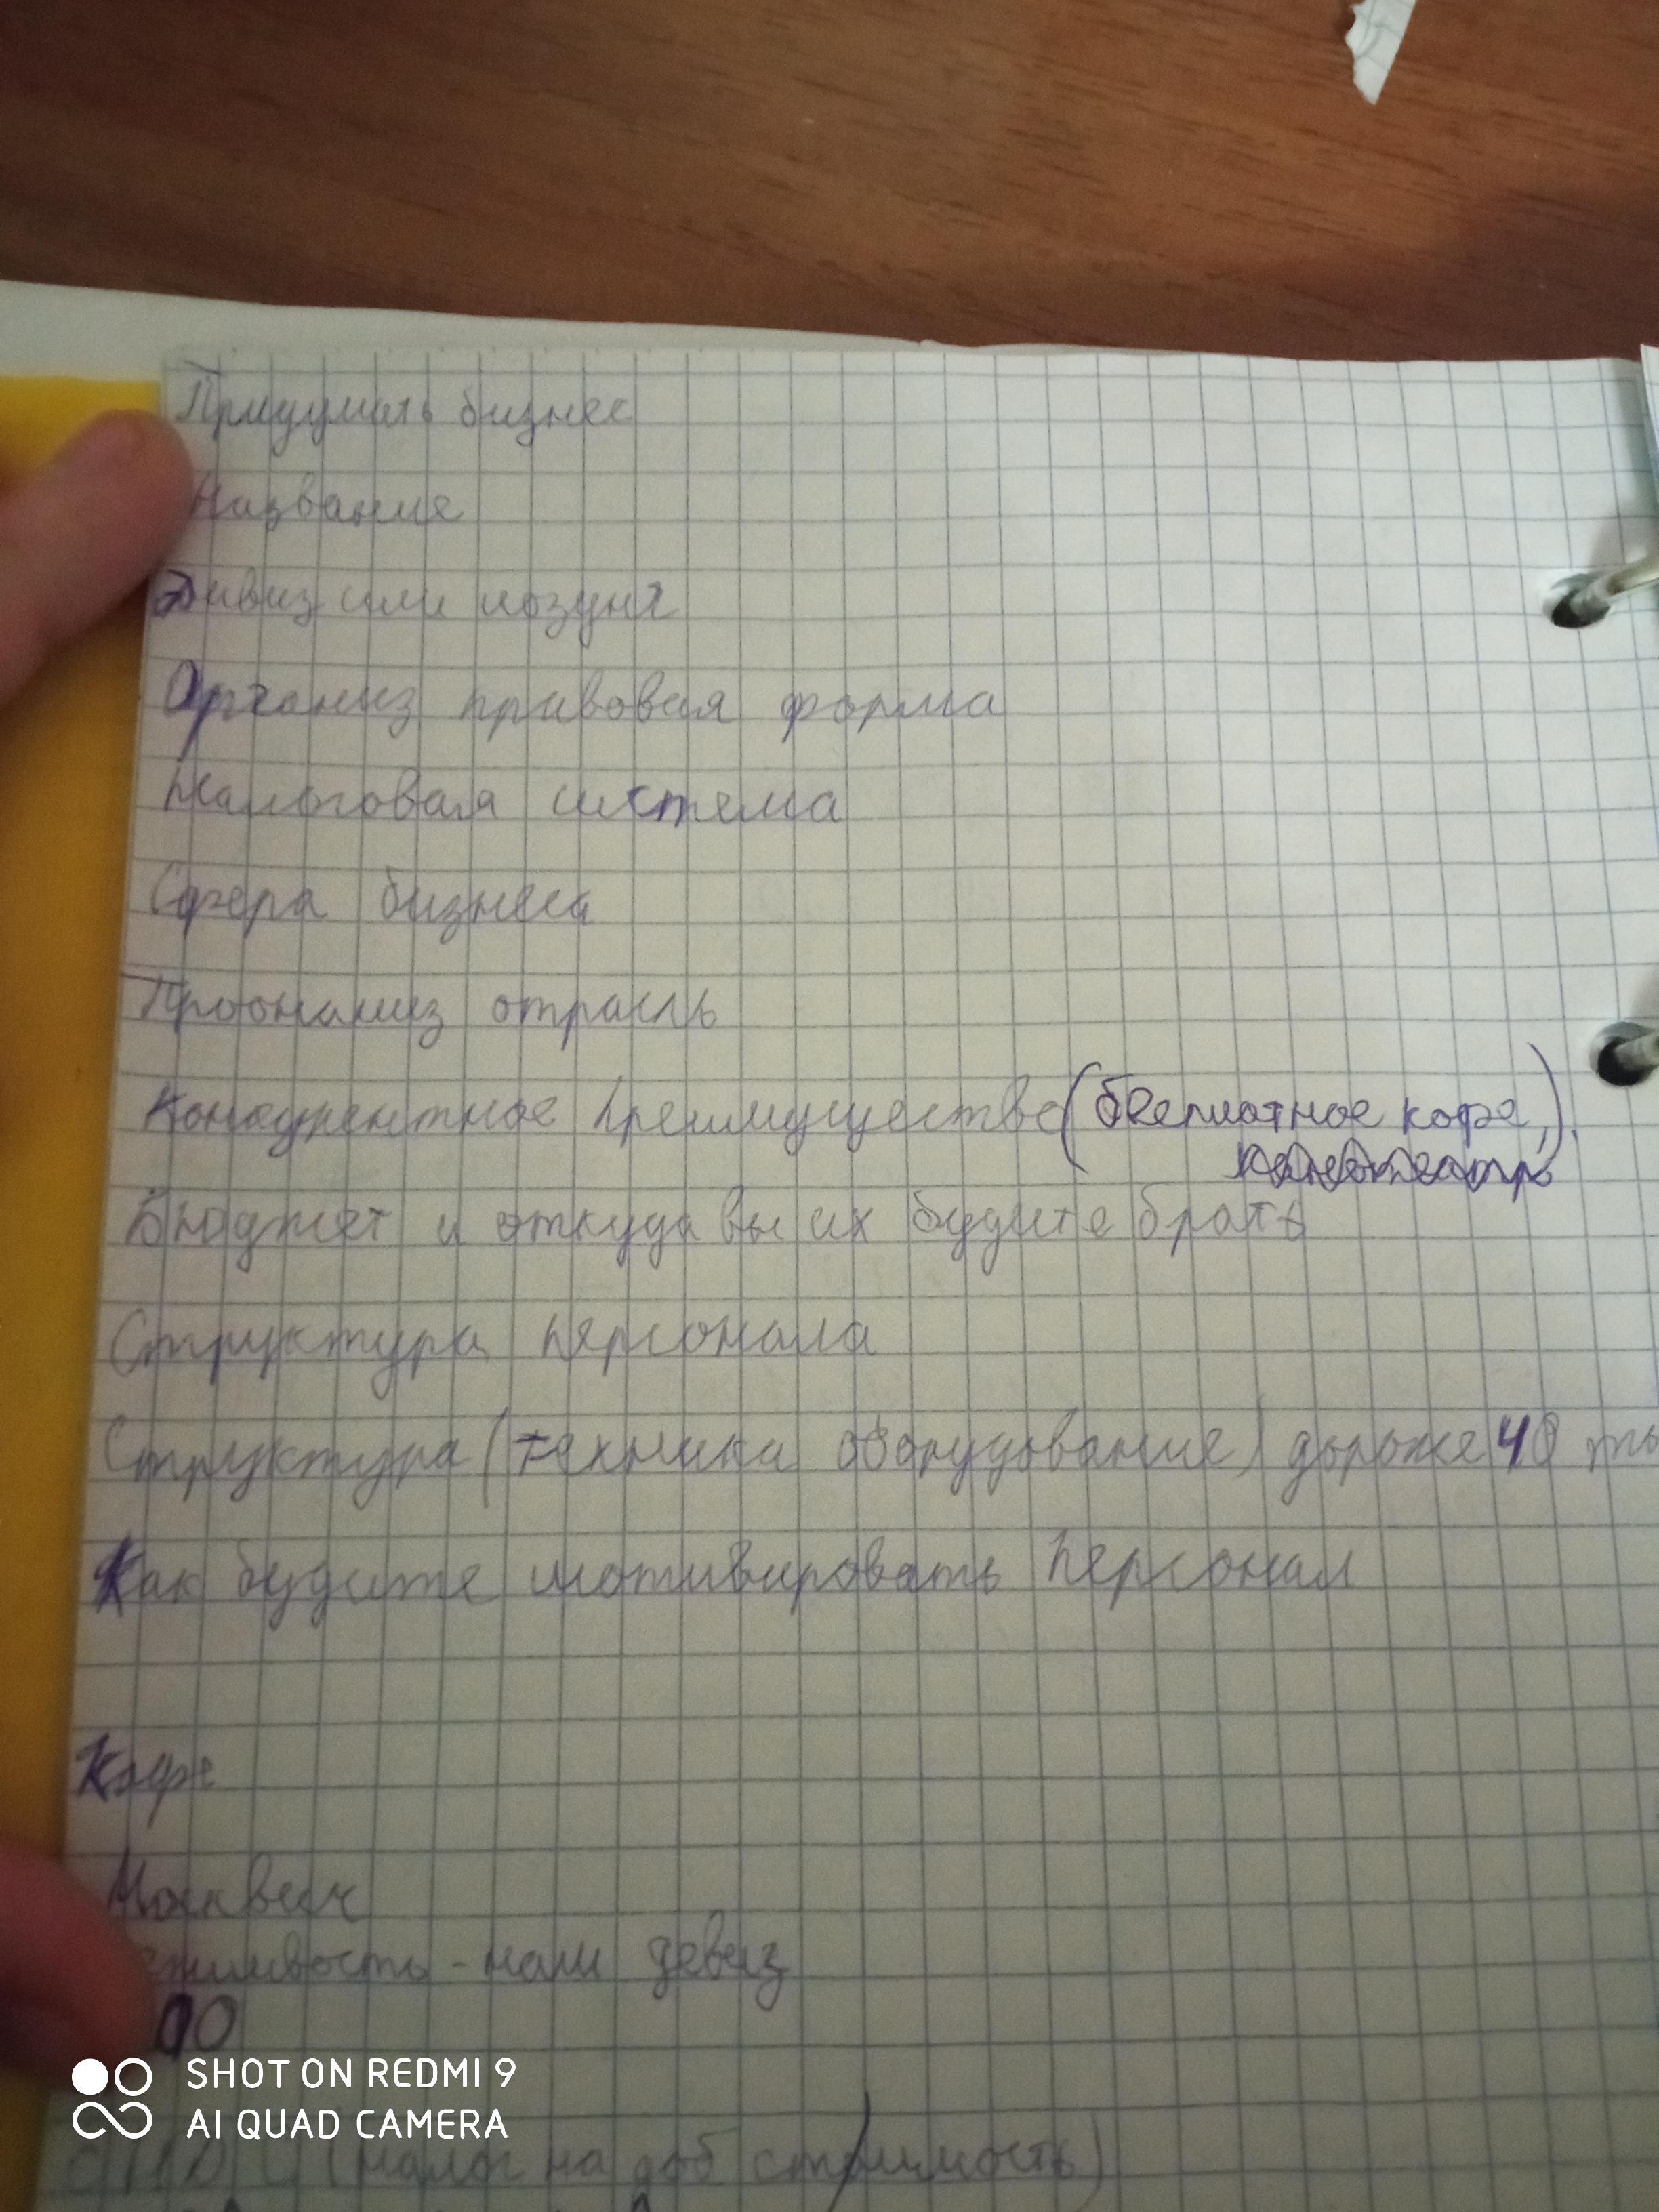 Придумать бизнес
Название
Дивиз или лозунг
Организ правовая форма
Налоговая система
Сфера бизнеса
Проонализ отрасль
Конкурентное преимущество (бесплотное кофе,).
Бюджет и откуда вы их будите брать
Структура персонала
Структура (техника оборудование) дороже 40 ты
Как будите мотивировать персонал
Кафе
Москвич
ежливость - наш девиз
ОО
НДС (налог на доб стоимость)
SHOT ON REDMI 9
AI QUAD CAMERA